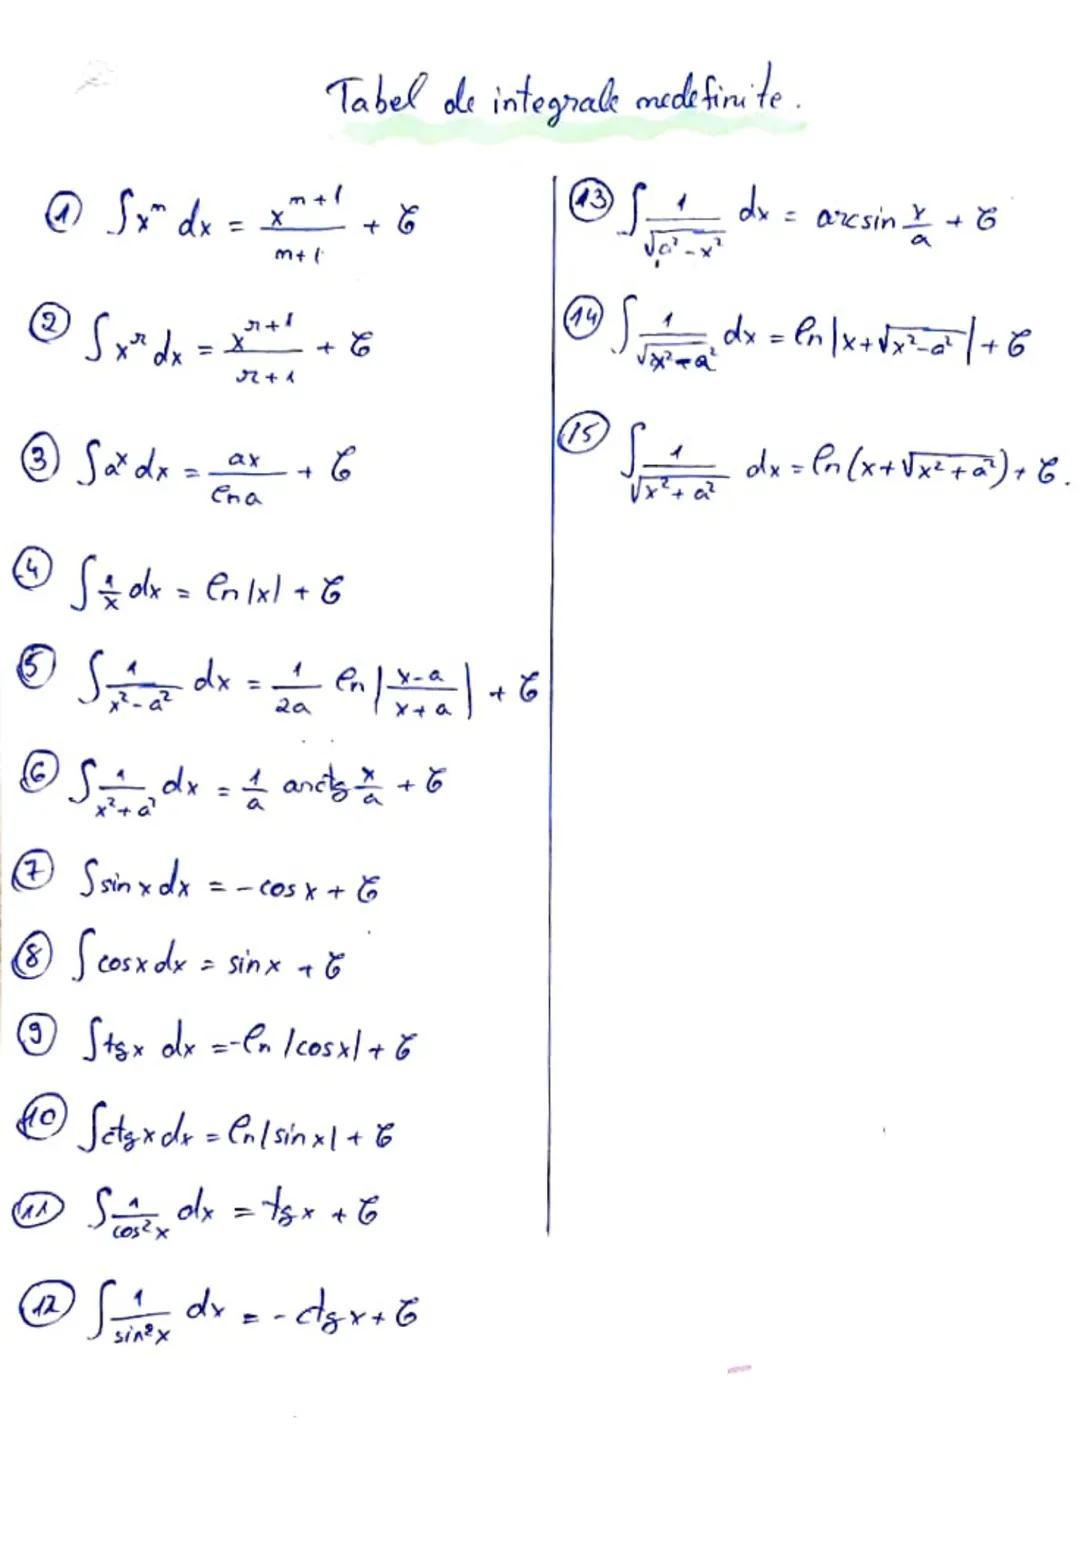 Tabel de integrale nedefinite.
① ∫xⁿ dx = xⁿ⁺¹/(n+1) + C
② ∫xʳ dx = xʳ⁺¹/(r+1) + C
③ ∫aˣ dx = ax/ln a + C
④ ∫1/x dx = ln|x| + C
⑤ ∫1/(x²-a²) dx = 1/2a ln|(x-a)/(x+a)| + C
⑥ ∫1/(x²+a²) dx = 1/a arctg x/a + C
⑦ ∫sin x dx = -cos x + C
⑧ ∫cos x dx = sin x + C
⑨ ∫tg x dx = -ln|cos x| + C
⑩ ∫ctg x dx = ln|sin x| + C
⑪ ∫1/cos²x dx = tg x + C
⑫ ∫1/sin²x dx = -ctg x + C
⑬ ∫1/√(a²-x²) dx = arcsin x/a + C
⑭ ∫1/√(x²-a²) dx = ln|x+√(x²-a²)| + C
⑮ ∫1/√(x²+a²) dx = ln(x+√(x²+a²)) + C.